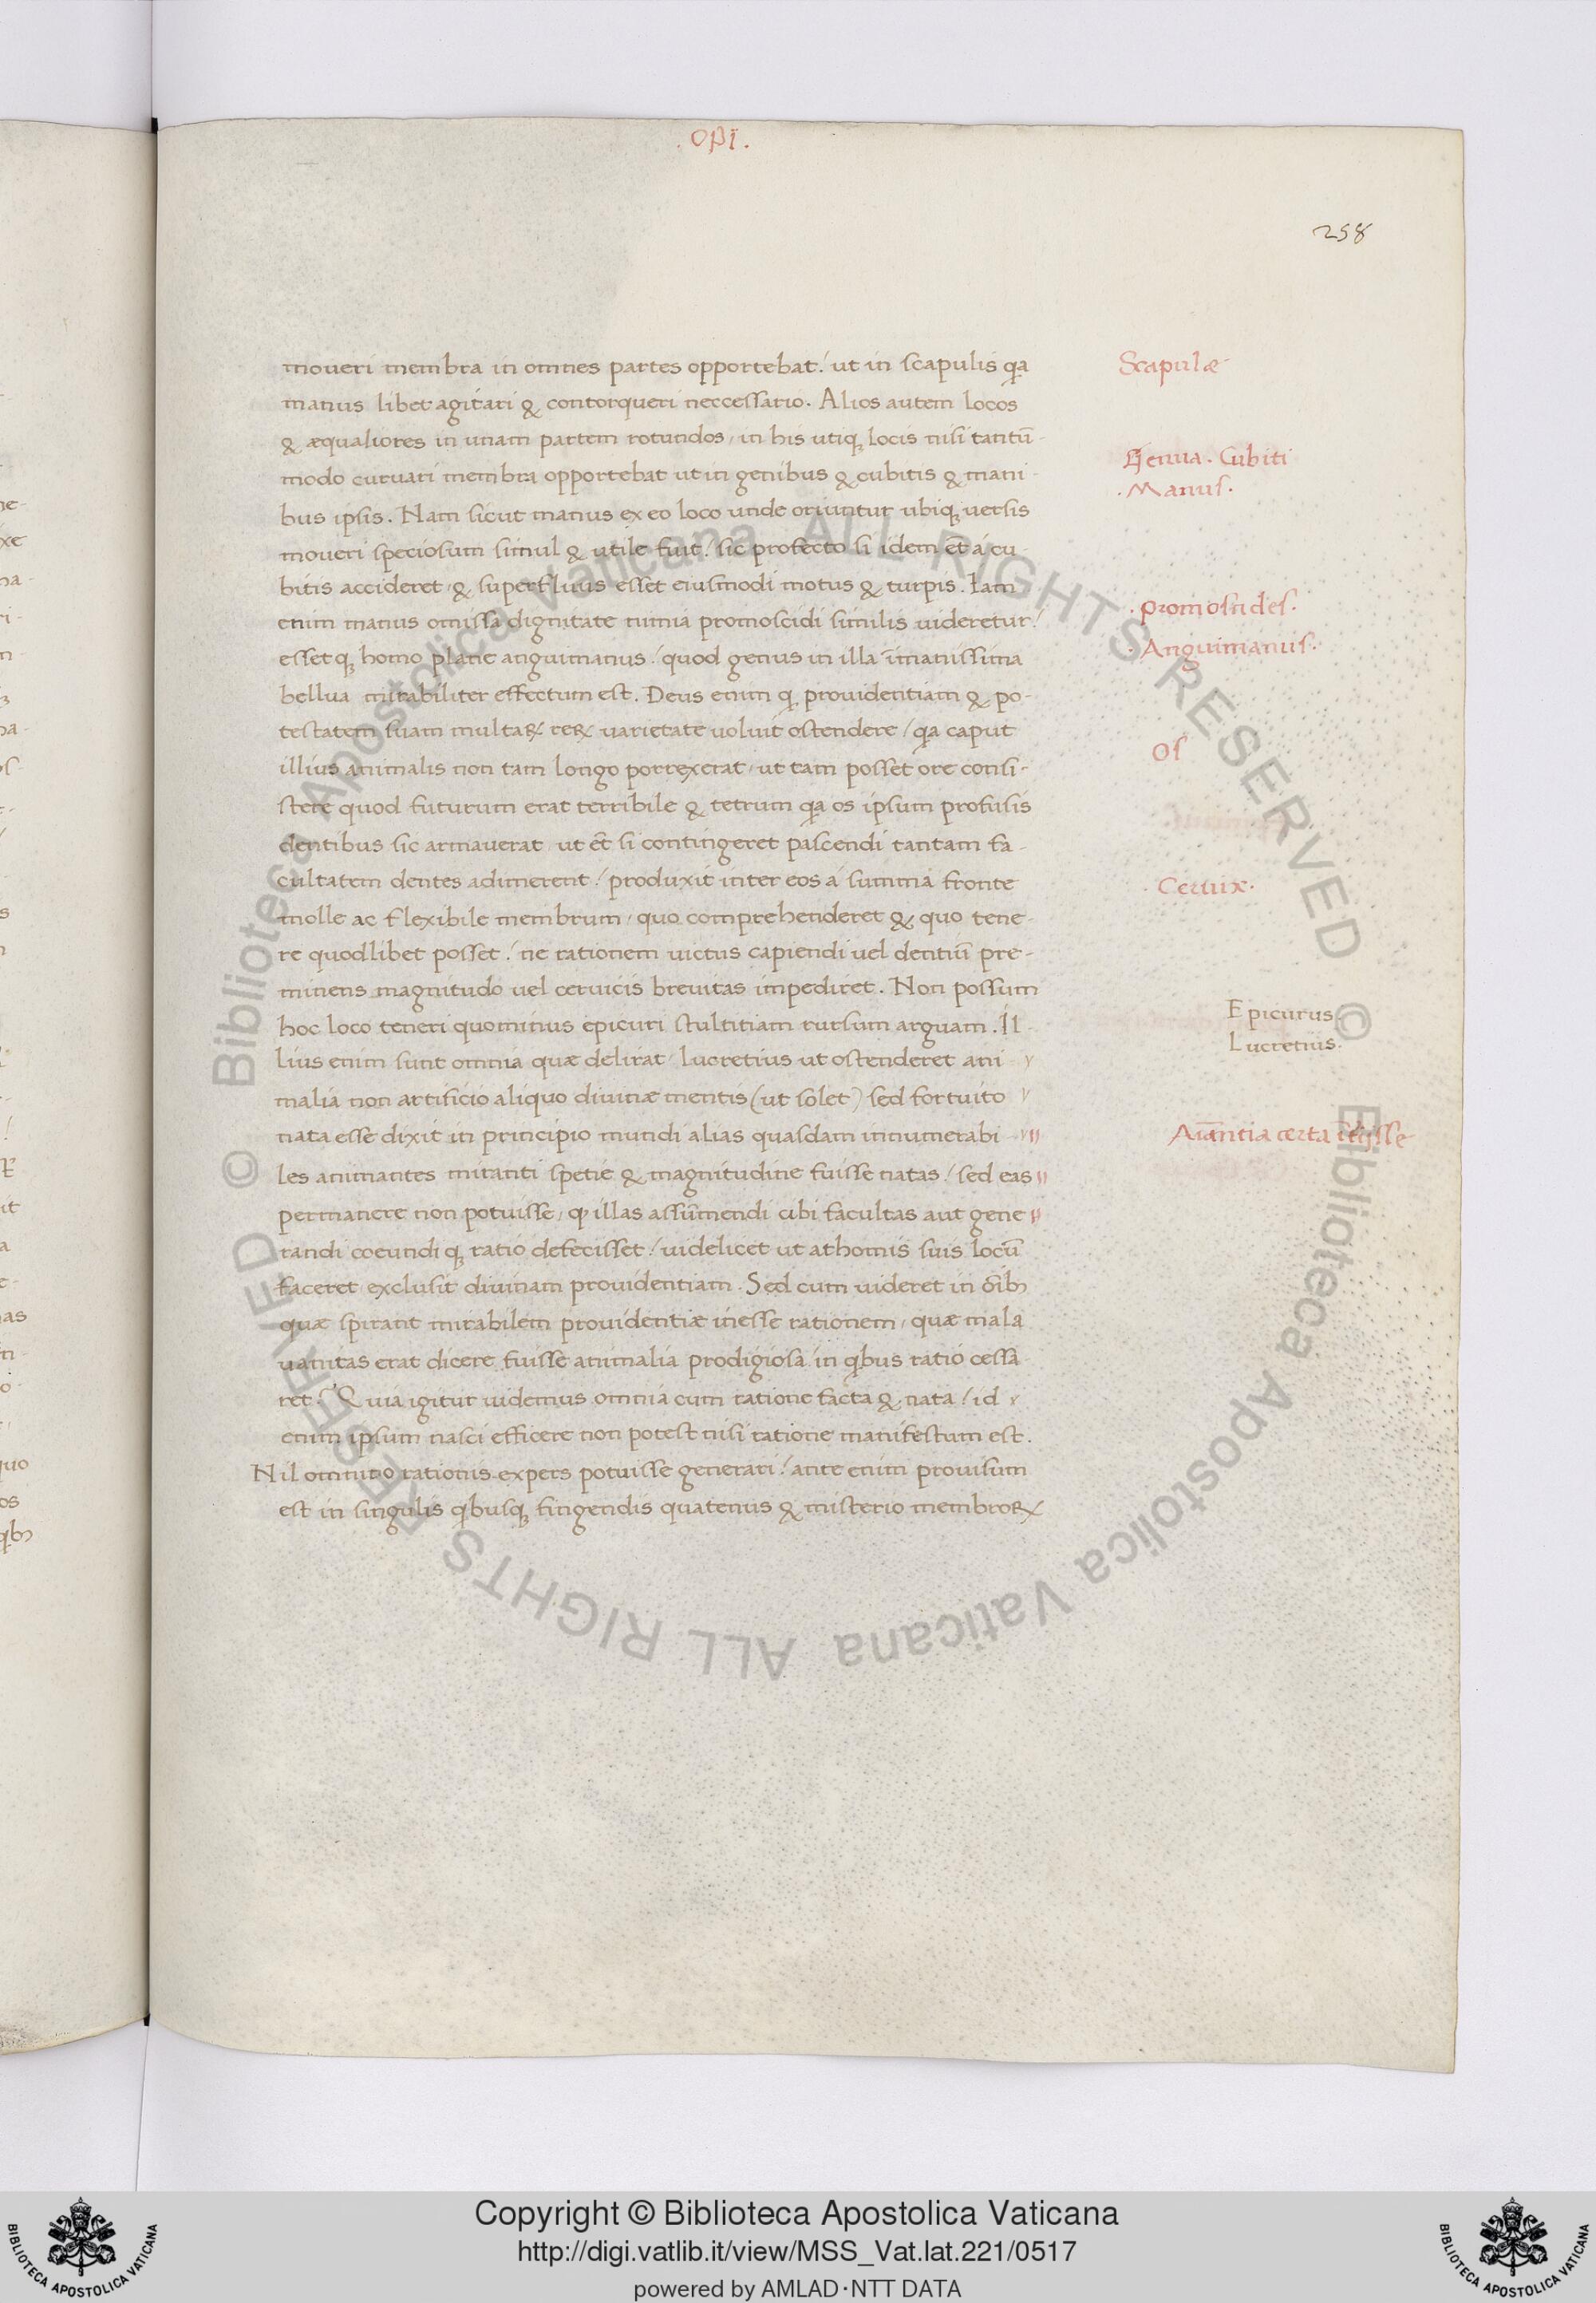 . OPI .
258
moveri membra in omnes partes opportebat / ut in scapulis qa
manus libet agitari & contorqueri neccessario. Alios autem locos
& æqualiores in unam partem rotundos / in his utiq; locis nisi tantū-
modo curvari membra opportebat ut in genibus & cubitis & mani-
bus ipsis. Nam sicut manus ex eo loco unde oriuntur ubiq; versis
moveri speciosum simul & utile fuit. sic profecto si idem et̄ á cu-
bitis accideret / & superfluus esset eiusmodi motus & turpis. Iam
enim manus omissa dignitate nimia promoscidi similis videretur /
esset q; homo plane anguimanus / quod genus in illa īmanissima
bellua mirabiliter effectum est. Deus enim q; providentiam & po-
testatem suam multaꝝ reꝝ varietate voluit ostendere / qa caput
illius animalis non tam longo porrexerat / ut tam posset ore consi-
stere quod futurum erat terribile & tetrum qa os ipsum profusis
dentibus sic armaverat / ut et̄ si contingeret pascendi tantam fa-
cultatem dentes adimerent / produxit inter eos á summa fronte
molle ac flexibile membrum / quo comprehenderet & quo tene-
re quodlibet posset / ne rationem victus capiendi vel dentiū pre-
minens magnitudo vel cervicis brevitas impediret. Non possum
hoc loco teneri quominus epicuri stultitiam rursum arguam. Il-
lius enim sunt omnia quæ delirat / lucretius ut ostenderet ani
malia non artificio aliquo divinæ mentis (ut solet) sed fortuito
nata esse dixit in principio mundi alias quasdam innumerabi-
les animantes miranti spetie & magnitudine fuisse natas / sed eas
permanere non potuisse / ꝙ illas assūmendi cibi facultas aut gene
randi coeundi q; ratio defecisset / videlicet ut athomis suis locū
faceret exclusit divinam providentiam. Sed cum videret in oīb;
quæ spirant mirabilem providentiæ inesse rationem / quæ mala
vanitas erat dicere fuisse animalia prodigiosa in qbus ratio cessa
ret. Quia igitur videmus omnia cum ratione facta & nata / id
enim ipsum nasci efficere non potest nisi ratione manifestum est.
Nil omnino rationis expers potuisse generari / ante enim provisum
est in singulis qbusq; fingendis quatenus & misterio membroꝝ
Scapulæ
Genua. Cubiti
. Manus.
. promoscides.
. Anguimanus.
Os
. Cervix.
Epicurus
Lucretius.
Aīantia certa
Copyright © Biblioteca Apostolica Vaticana
http://digi.vatlib.it/view/MSS_Vat.lat.221/0517
powered by AMLAD·NTT DATA
BIBLIOTECA APOSTOLICA VATICANA
BIBLIOTECA APOSTOLICA VATICANA
© Biblioteca Apostolica Vaticana ALL RIGHTS RESERVED
© Biblioteca Apostolica Vaticana ALL RIGHTS RESERVED